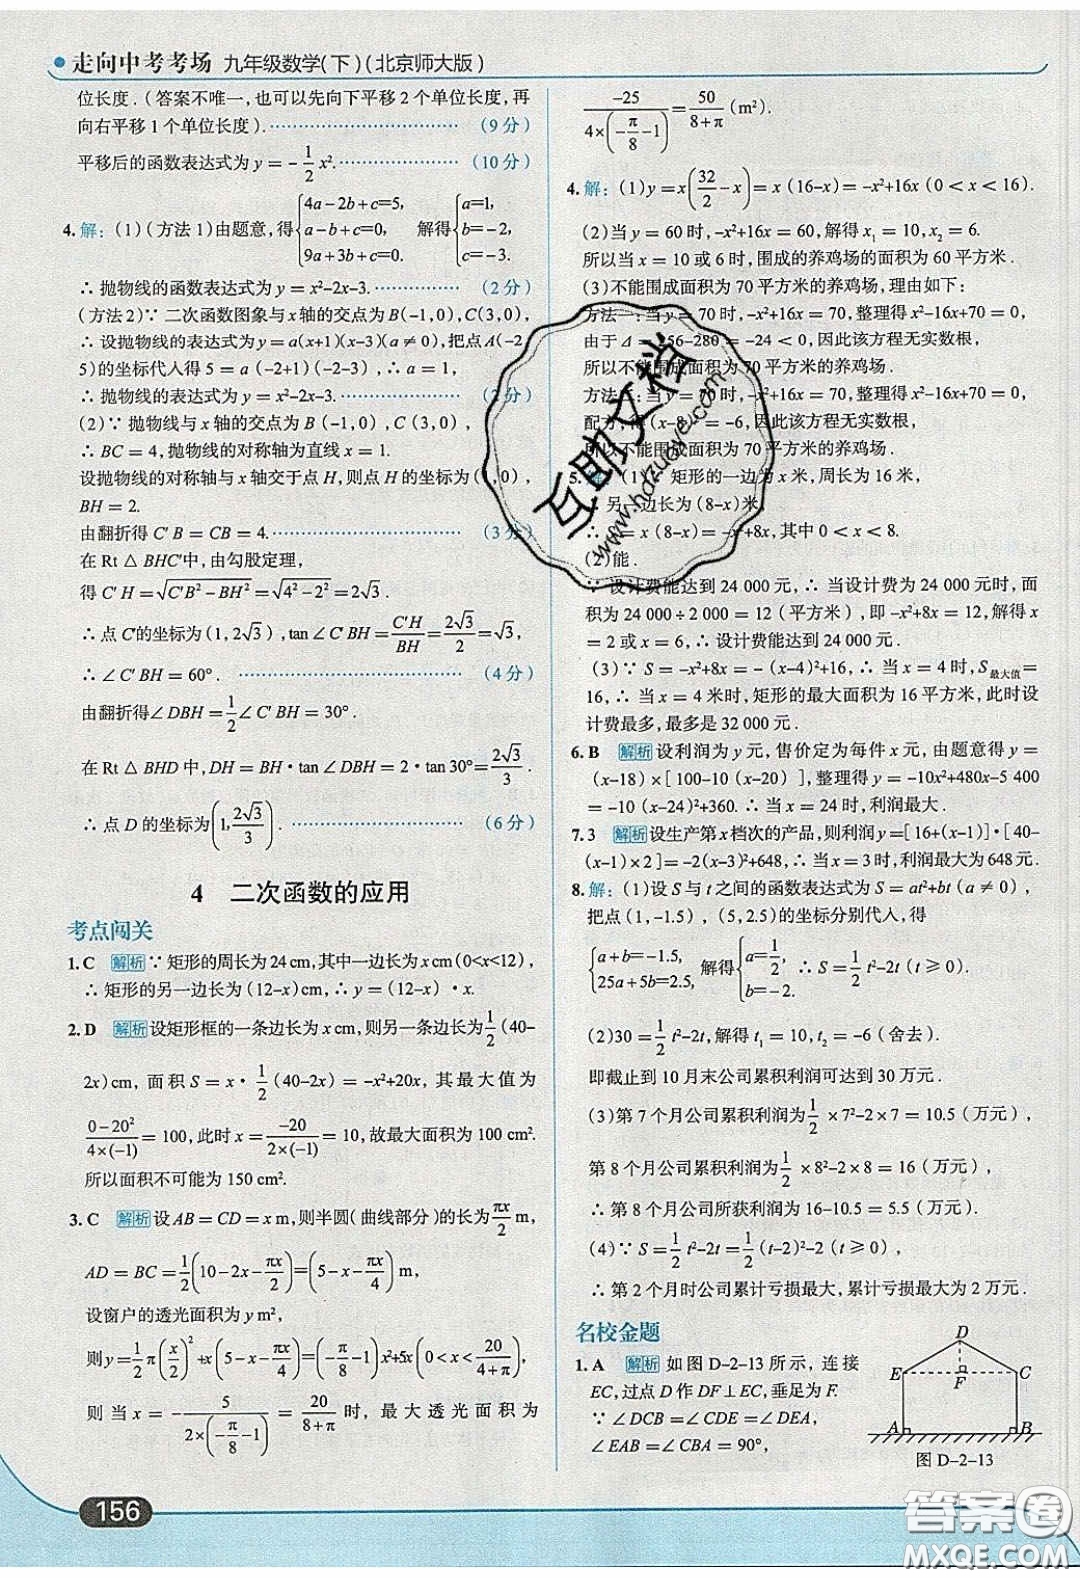 走向中考考场 九年级数学(下)(北京师大版)
位长度.(答案不唯一,也可以先向下平移2个单位长度,再
向右平移1个单位长度).……(9分)
平移后的函数表达式为y=-1/2 x².……(10分)
4.解:(1)(方法1)由题意,得{4a-2b+c=5, a-b+c=0, 9a+3b+c=0. 解得{a=1, b=-2, c=-3.
∴抛物线的函数表达式为y=x²-2x-3.……(2分)
(方法2)∵二次函数图象与x轴的交点为B(-1,0),C(3,0),
∴设抛物线的表达式为y=a(x+1)(x-3)(a≠0),把点A(-2,
5)的坐标代人得5=a(-2+1)(-2-3),∴a=1,
∴抛物线的表达式为y=x²-2x-3.……(2分)
(2)∵抛物线与x轴的交点为B(-1,0),C(3,0),
∴BC=4,抛物线的对称轴为直线x=1.
设抛物线的对称轴与x轴交于点H,则点H的坐标为(1,0),
BH=2.
由翻折得C′B=CB=4.……(3分)
在Rt△BHC′中,由勾股定理,
得C′H=√(C′B²-BH²)=√(4²-2²)=2√3.
∴点C′的坐标为(1,2√3),tan∠C′BH=C′H/BH=2√3/2=√3,
∴∠C′BH=60°.……(4分)
由翻折得∠DBH=1/2∠C′BH=30°.
在Rt△BHD中,DH=BH·tan∠DBH=2·tan30°=2√3/3.
∴点D的坐标为(1,2√3/3).……(6分)
4 二次函数的应用
考点闯关
1.C 解析∵矩形的周长为24cm,其中一边长为xcm(0<x<12),
∴矩形的另一边长为(12-x)cm,∴y=(12-x)·x.
2.D 解析设矩形框的一条边长为xcm,则另一条边长为1/2(40-
2x)cm,面积S=x·1/2(40-2x)=-x²+20x,其最大值为
(0-20²)/(4×(-1))=100,此时x=-20/(2×(-1))=10,故最大面积为100cm².
所以面积不可能为150cm².
3.C 解析设AB=CD=xm,则半圆(曲线部分)的长为πx/2 m,
AD=BC=1/2(10-2x-πx/2)=(5-x-πx/4)m,
设窗户的透光面积为ym²,
则y=1/2π(x/2)²+x(5-x-πx/4)=(-π/8-1)x²+5x(0<x<20/(4+π)),
则当x=-5/(2×(-π/8-1))=20/(8+π)时,最大透光面积为
-25/(4×(-π/8-1))=50/(8+π)(m²).
4.解:(1)y=x(32/2-x)=x(16-x)=-x²+16x(0<x<16).
(2)当y=60时,-x²+16x=60,解得x₁=10,x₂=6.
所以当x=10或6时,围成的养鸡场的面积为60平方米.
(3)不能围成面积为70平方米的养鸡场.理由如下:
方法一:当y=70时,-x²+16x=70,整理得x²-16x+70=0,
由于Δ=256-280=-24<0,因此该方程无实数根,
所以不能围成面积为70平方米的养鸡场.
方法二:当y=70时,-x²+16x=70,整理得x²-16x+70=0,
配方,得(x-8)²=-6,因此该方程无实数根,
所以不能围成面积为70平方米的养鸡场.
5.解:(1)∵矩形的一边为x米,周长为16米,
∴另一边长为(8-x)米,
∴S=x(8-x)=-x²+8x,其中0<x<8.
(2)能.
∵设计费能达到24 000元,∴当设计费为24 000元时,面
积为24 000÷2 000=12(平方米),即-x²+8x=12,解得x
=2或x=6,∴设计费能达到24 000元.
(3)∵S=-x²+8x=-(x-4)²+16,∴当x=4时,S最大值=
16,∴当x=4时,矩形的最大面积为16平方米,此时设
计费最多,最多是32 000元.
6.B 解析设利润为y元,售价定为每件x元,由题意得y=
(x-18)×[100-10(x-20)],整理得y=-10x²+480x-5 400
=-10(x-24)²+360.∴当x=24时,利润最大.
7.3 解析设生产第x档次的产品,则利润y=[16+(x-1)]·[40-
(x-1)×2]=-2(x-3)²+648,∴当x=3时,利润最大为648元.
8.解:(1)设S与t之间的函数表达式为S=at²+bt(a≠0),
把点(1,-1.5),(5,2.5)的坐标分别代人,得
{a+b=-1.5, 25a+5b=2.5, 解得{a=1/2, b=-2. ∴S=1/2 t²-2t(t≥0).
(2)30=1/2 t²-2t,解得t₁=10,t₂=-6(舍去).
即截止到10月末公司累积利润可达到30万元.
(3)第7个月公司累积利润为1/2×7²-2×7=10.5(万元),
第8个月公司累积利润为1/2×8²-2×8=16(万元),
∴第8个月公司所获利润为16-10.5=5.5(万元).
(4)∵S=1/2 t²-2t=1/2(t-2)²-2(t≥0),
∴第2个月时公司累计亏损最大,累计亏损最大为2万元.
名校金题
1.A 解析如图D-2-13所示,连接
EC,过点D作DF⊥EC,垂足为F.
∵∠DCB=∠CDE=∠DEA,
∠EAB=∠CBA=90°,
D
E F C
A B
图D-2-13
互助文档
www.hdzuoye.com
156
答案圈
MXQE.COM